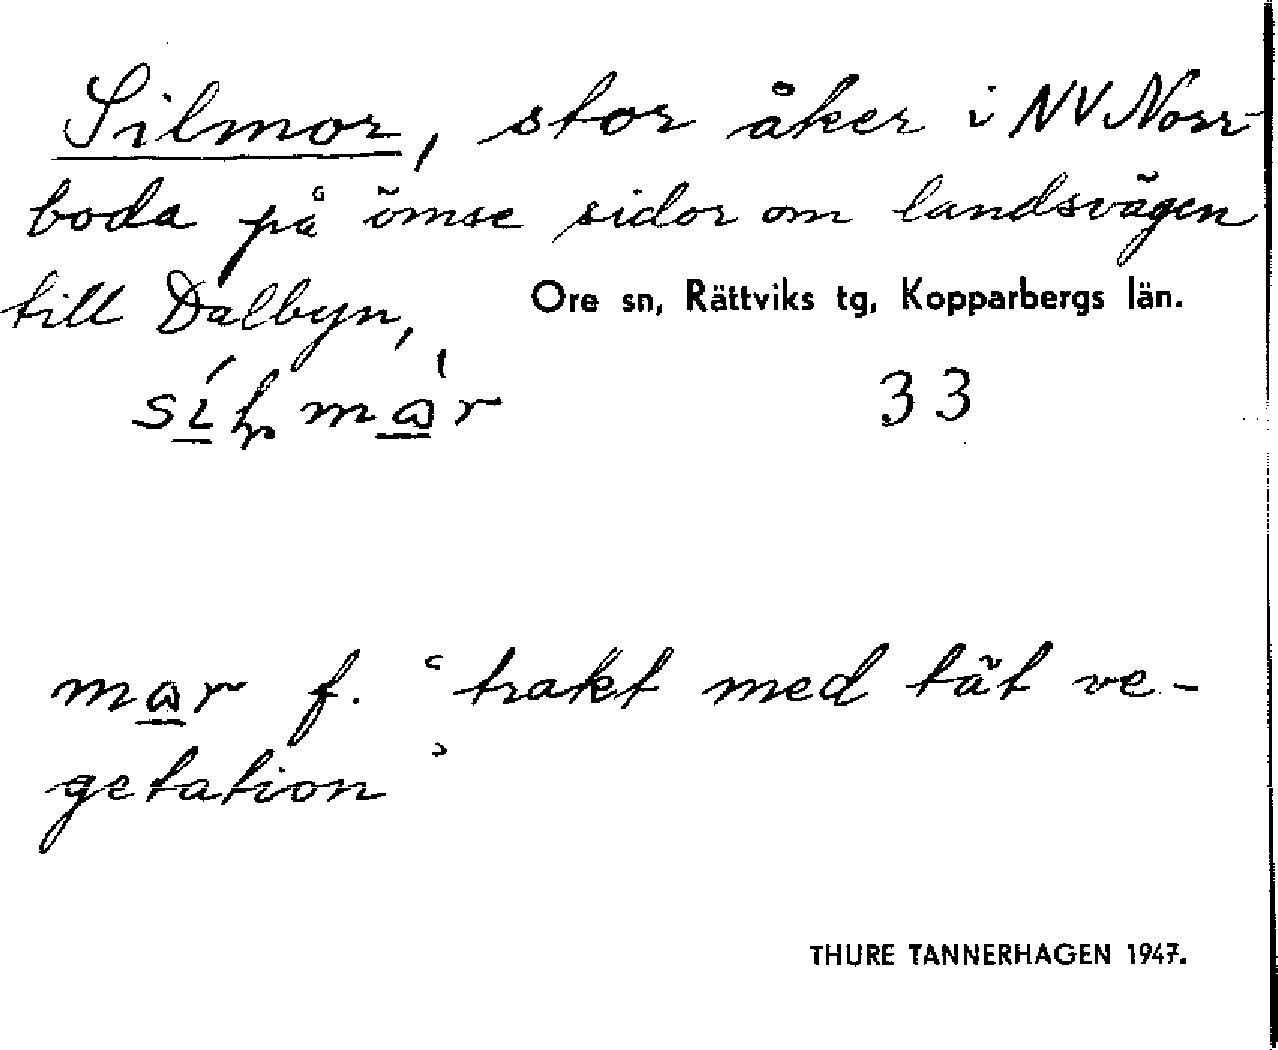 Silmor, stor åker i NV Norr-
boda på ömse sidor om landsvägen
till Dalbyn,
Ore sn, Rättviks tg, Kopparbergs län.
33
mar f. "trakt med tät ve-
getation"
THURE TANNERHAGEN 1947.